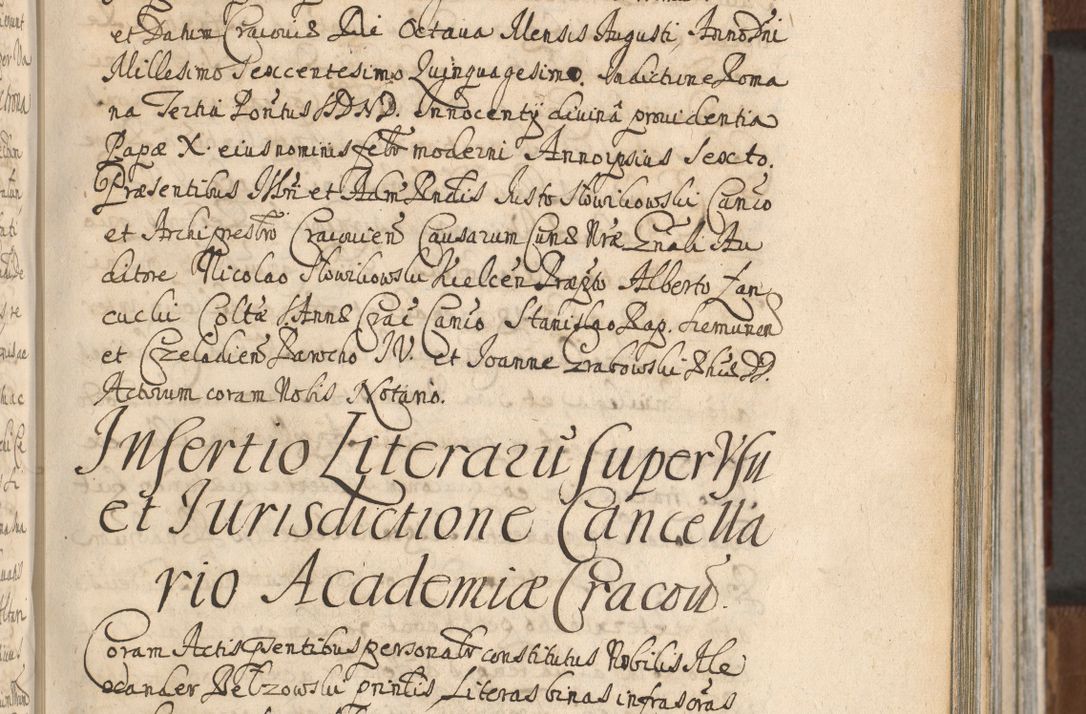 et Datum Cracouiæ Die Octaua Mensis Augusti, Anno Dñi
Millesimo Sexcentesimo Quinquagesimo. Indictione Roma
na Tertia Pontus SDND. Innocentij diuinâ prouidentia
Papæ X. eius nominis felr moderni Anno ipsius Sexto.
Præsentibus Illri et Adm Rndis Justo Słowikowski Canco
et Archipresbro Cracouien Causarum Curiæ Nræ Gnali Au
ditore Nicolao Słowikowski Kielcen Præpto Alberto Łan
cucki Coltæ S. Annæ Crac Canco Stanislao Rap. Lemunen
et Czeladien Parocho IV. et Joanne Grabowski
Actorum coram Nobis Notario.
Insertio Literarū super Vsu
et Jurisdictione Cancella
rio Academiæ Cracou.
Coram Actis psentibus personalr constitutus Nobilis Ale
xander Bełzowski printis Literas binas infrascras